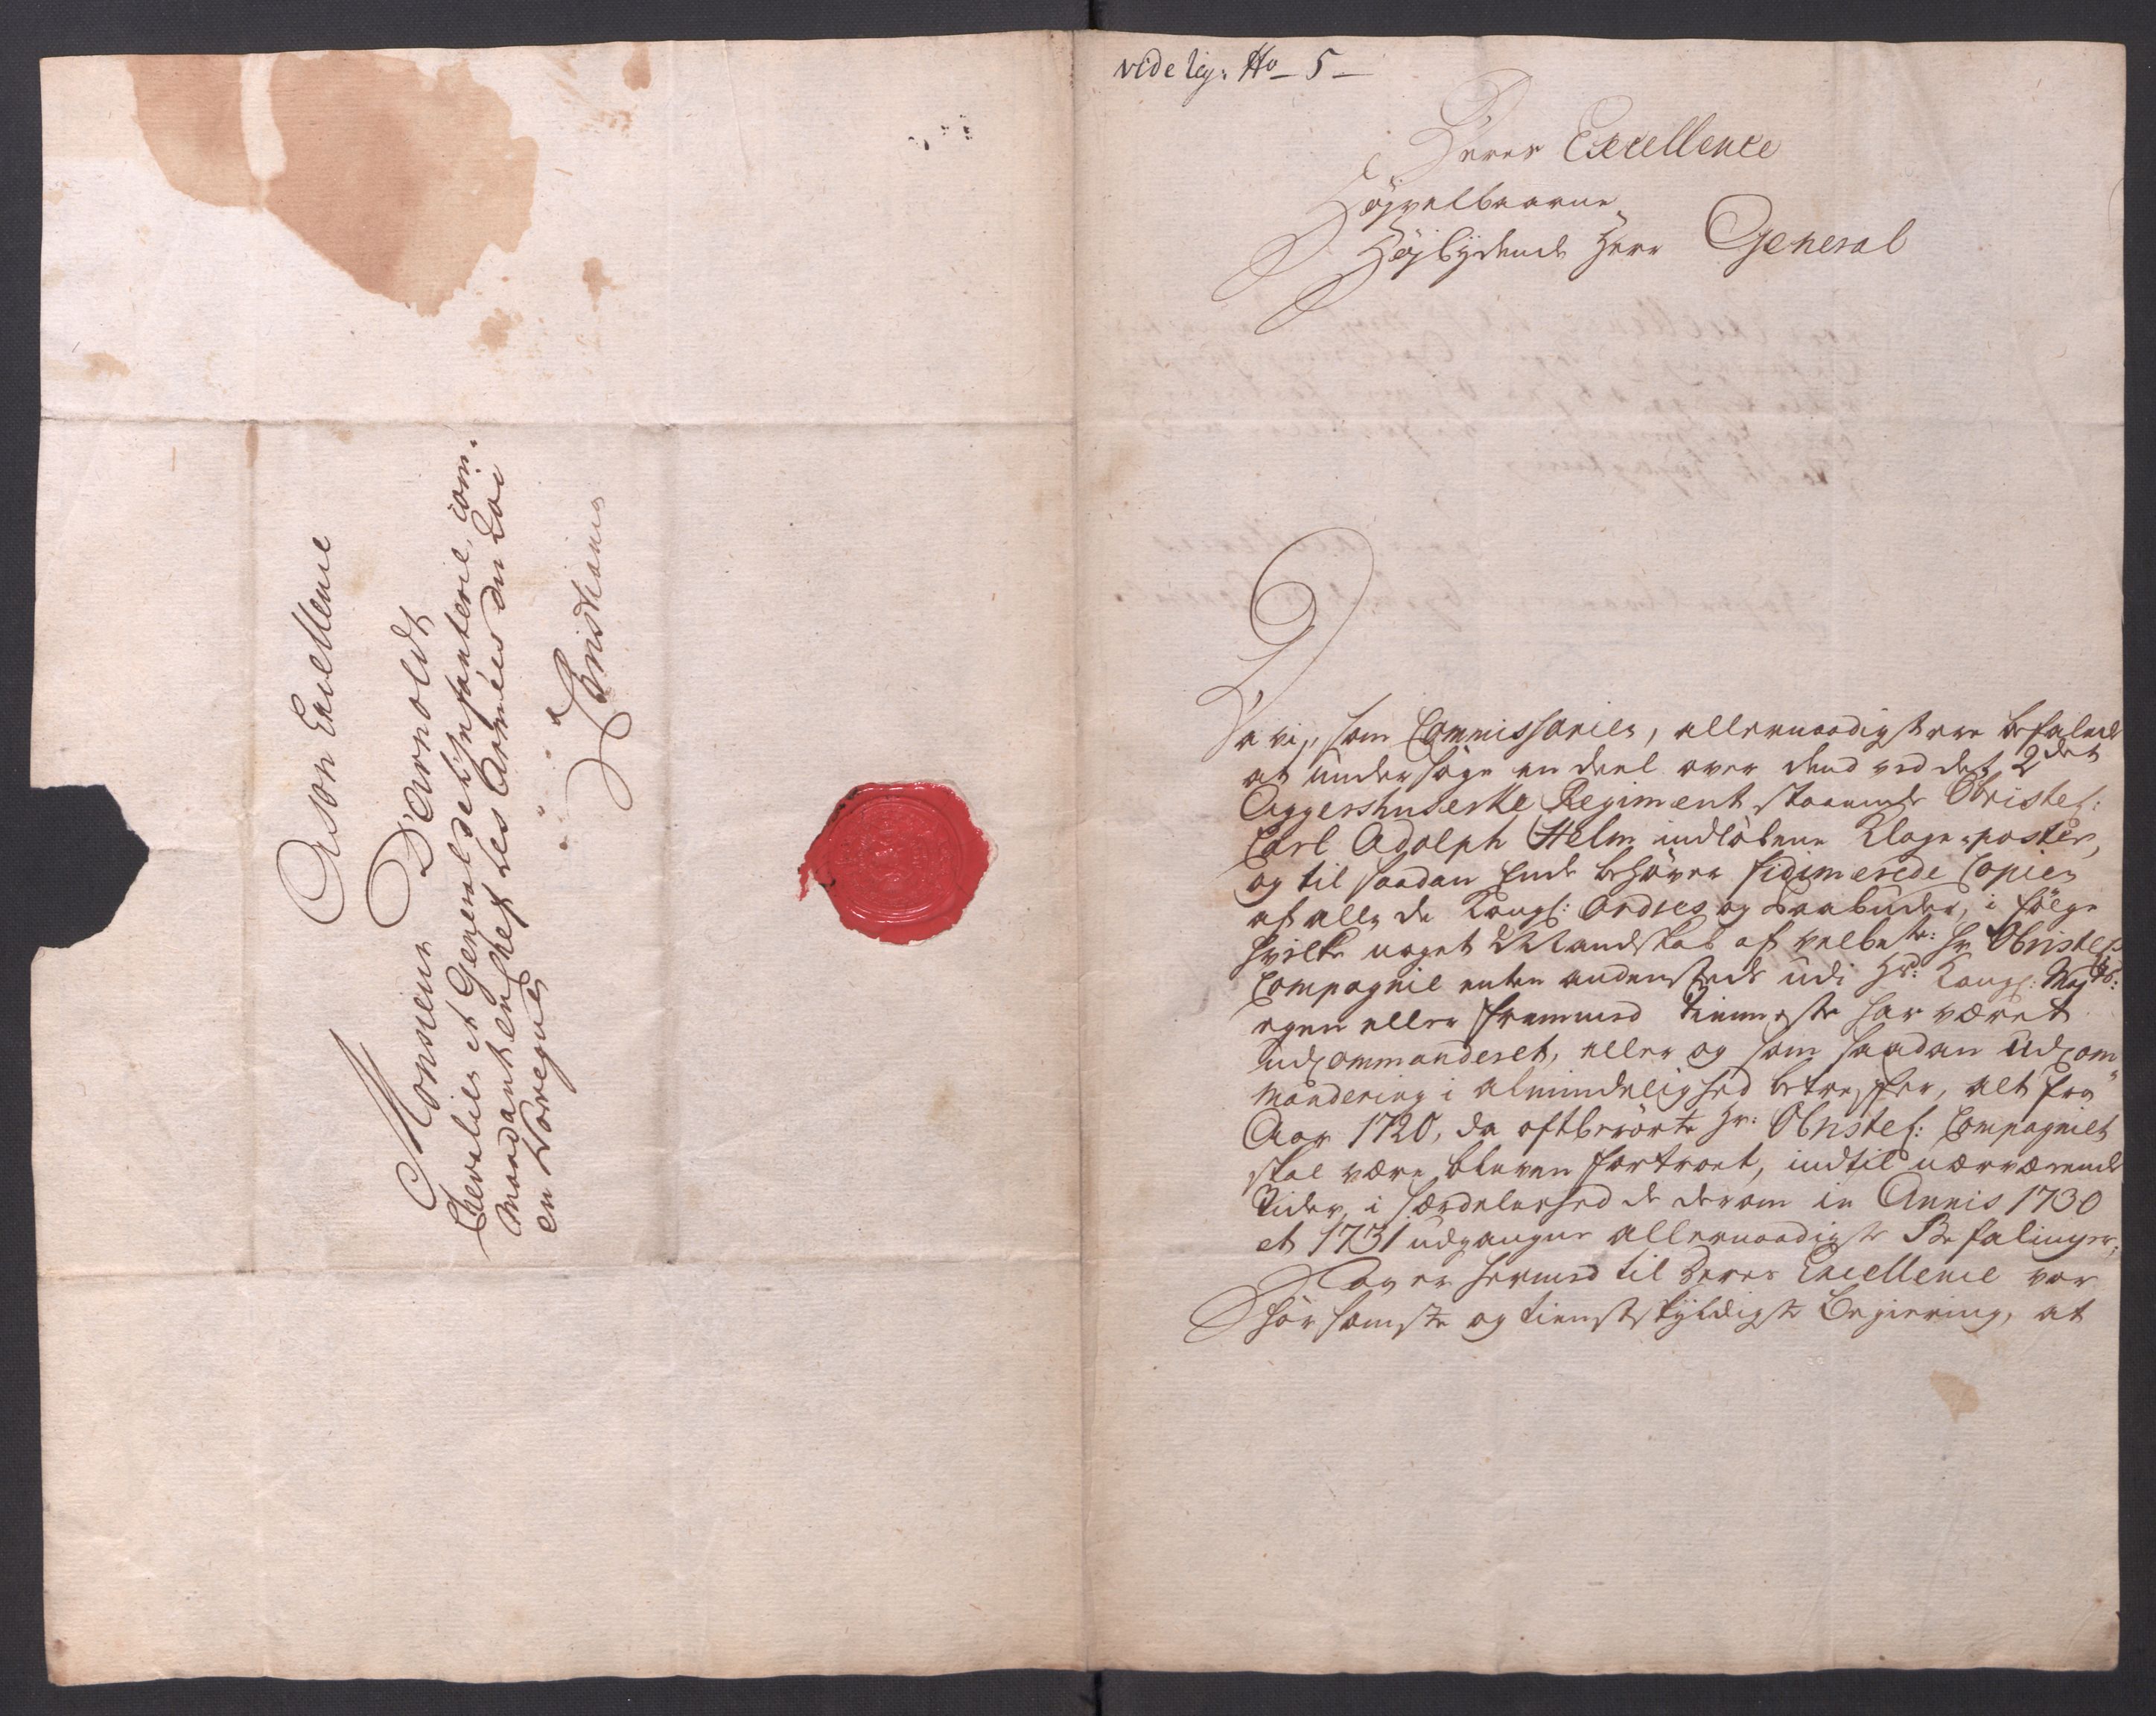 A Son Excellence
Monsieur D'Arnoldt
Chevalier et General de l'Infanterie, com-
mandant en Chef les Armées du Roi
en Noregues
à
Christiania
vide lig: No 5
Deres Excellence
Høyvelbaarne
Høybydende Herr General
Da vi, som Commissarier, allernaadigst ere befalede
at undersøge en deel over dend ved det 2det
Aggershuuske Regiment staaende Obristel:
Carl Adolph Helm indløbene Klage-poster,
og til saadan Ende behøver fidimerede Copier
af alle de Kongl: Ordres og Paabuder, i følge
hvilke noget Mandskab af velbete: Hr Obristel:
Compagnie enten andensteds udi Hs: Kongl: Mayts:
egen eller fremmed tienneste har været
udcommanderet, eller og som saadan Udcom-
mandering i almindelighed betreffer, alt fra
Aar 1720, da oftberørte Hr: Obristel: Compagniet
skal være bleven fortroet, indtil nærværende
Tider, i særdeleshed de derom in Annis 1730
et 1731 udgangne allernaadigste Befalinger;
Saa er hermed til Deres Excellence vor
hørsomste og tienstskyldigste Begiering, at